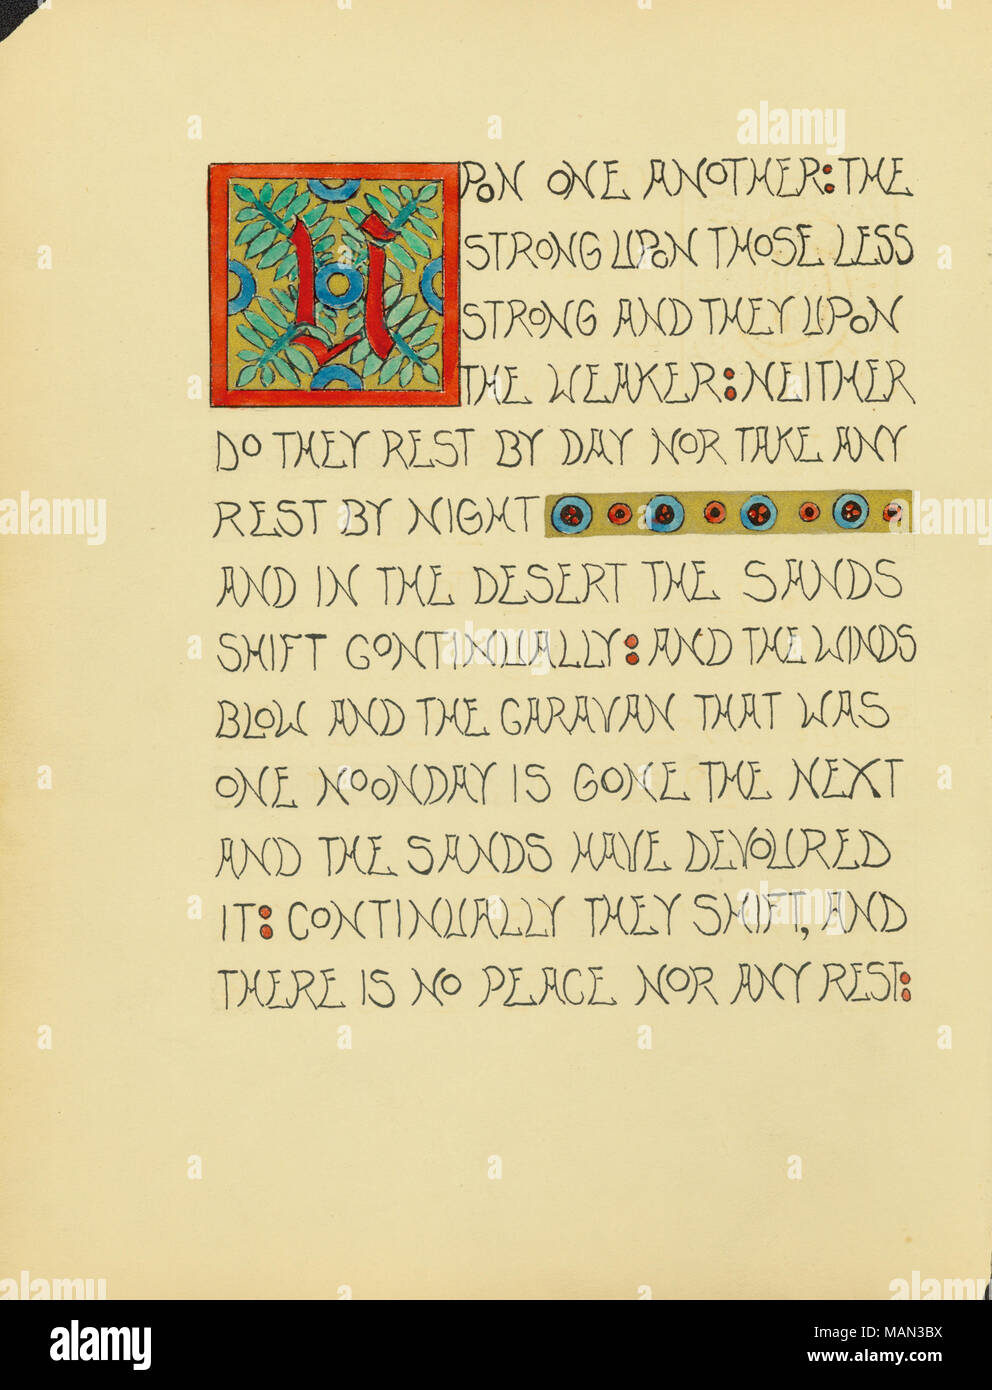 UPON ONE ANOTHER: THE
STRONG UPON THOSE LESS
STRONG AND THEY UPON
THE WEAKER: NEITHER
DO THEY REST BY DAY NOR TAKE ANY
REST BY NIGHT
AND IN THE DESERT THE SANDS
SHIFT CONTINUALLY: AND THE WINDS
BLOW AND THE CARAVAN THAT WAS
ONE NOONDAY IS GONE THE NEXT
AND THE SANDS HAVE DEVOURED
IT: CONTINUALLY THEY SHIFT, AND
THERE IS NO PEACE NOR ANY REST:
alamy
a
alamy
Image ID: MAN3BX
www.alamy.com